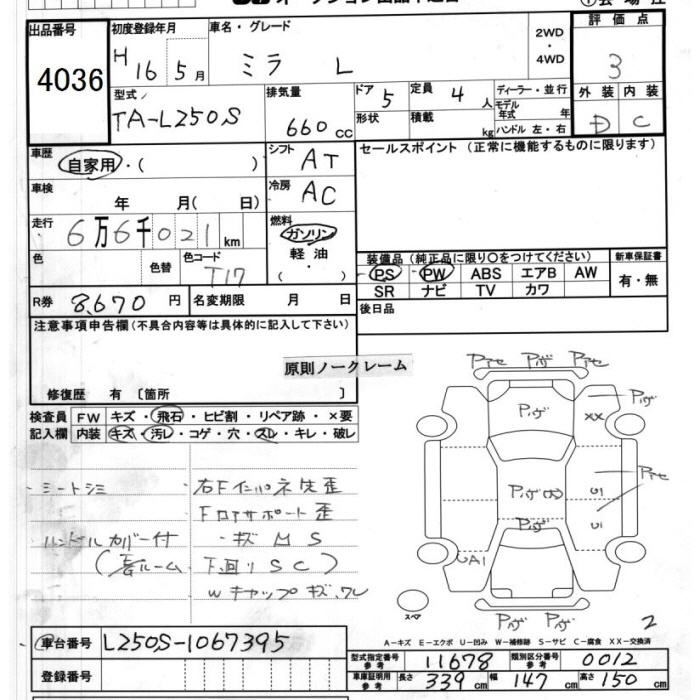 出品番号 初度登録年月 車名・グレード 2WD ・ 4WD 評価点
4036 H 16 5月 ミラ L 3
型式 排気量 ドア 5 定員 4人 ディーラー・並行 外装 内装
TA-L250S 660cc 形状 積載 kg モデル年式 年 D C
ハンドル 左・右
車歴 自家用・( ) シフト AT セールスポイント (正常に機能するものに限ります)
車検 年 月( 日) 冷房 AC
走行 6万6千021km 燃料 ガソリン 軽油 ( ・ )
色 色替 色コード T17 装備品 (純正品に限り○をつけてください) 新車保証書
PS PW ABS エアB AW 有・無
SR ナビ TV カワ
R券 8,670円 名変期限 月 日 後日品
注意事項申告欄(不具合内容等は具体的に記入して下さい)
原則ノークレーム
修復歴 有 〔箇所 〕
検査員 FW キズ・飛石・ヒビ割・リペア跡・×要
記入欄 内装 キズ・汚レ・コゲ・穴・スレ・キレ・破レ
シートシミ 右Fインパネ先歪
Fロアサポート歪
ハンドルカバー付 ・キズMS
下回りSC)
Wキャップキズ、ワレ
Pアセ Pカゲ Pアセ
Pカゲ Pカゲ
XX
Pアセ
Pカゲ
Pカゲ
UA1
Pカゲ Pカゲ
スペア
2
A-キズ E-エクボ U-凹み W-補修跡 S-サビ C-腐食 XX-交換済
車台番号 L250S-1067395
登録番号
型式指定番号 参考 11678 類別区分番号 参考 0012
車庫証明用 参考 長さ 339cm 幅 147cm 高さ 150cm